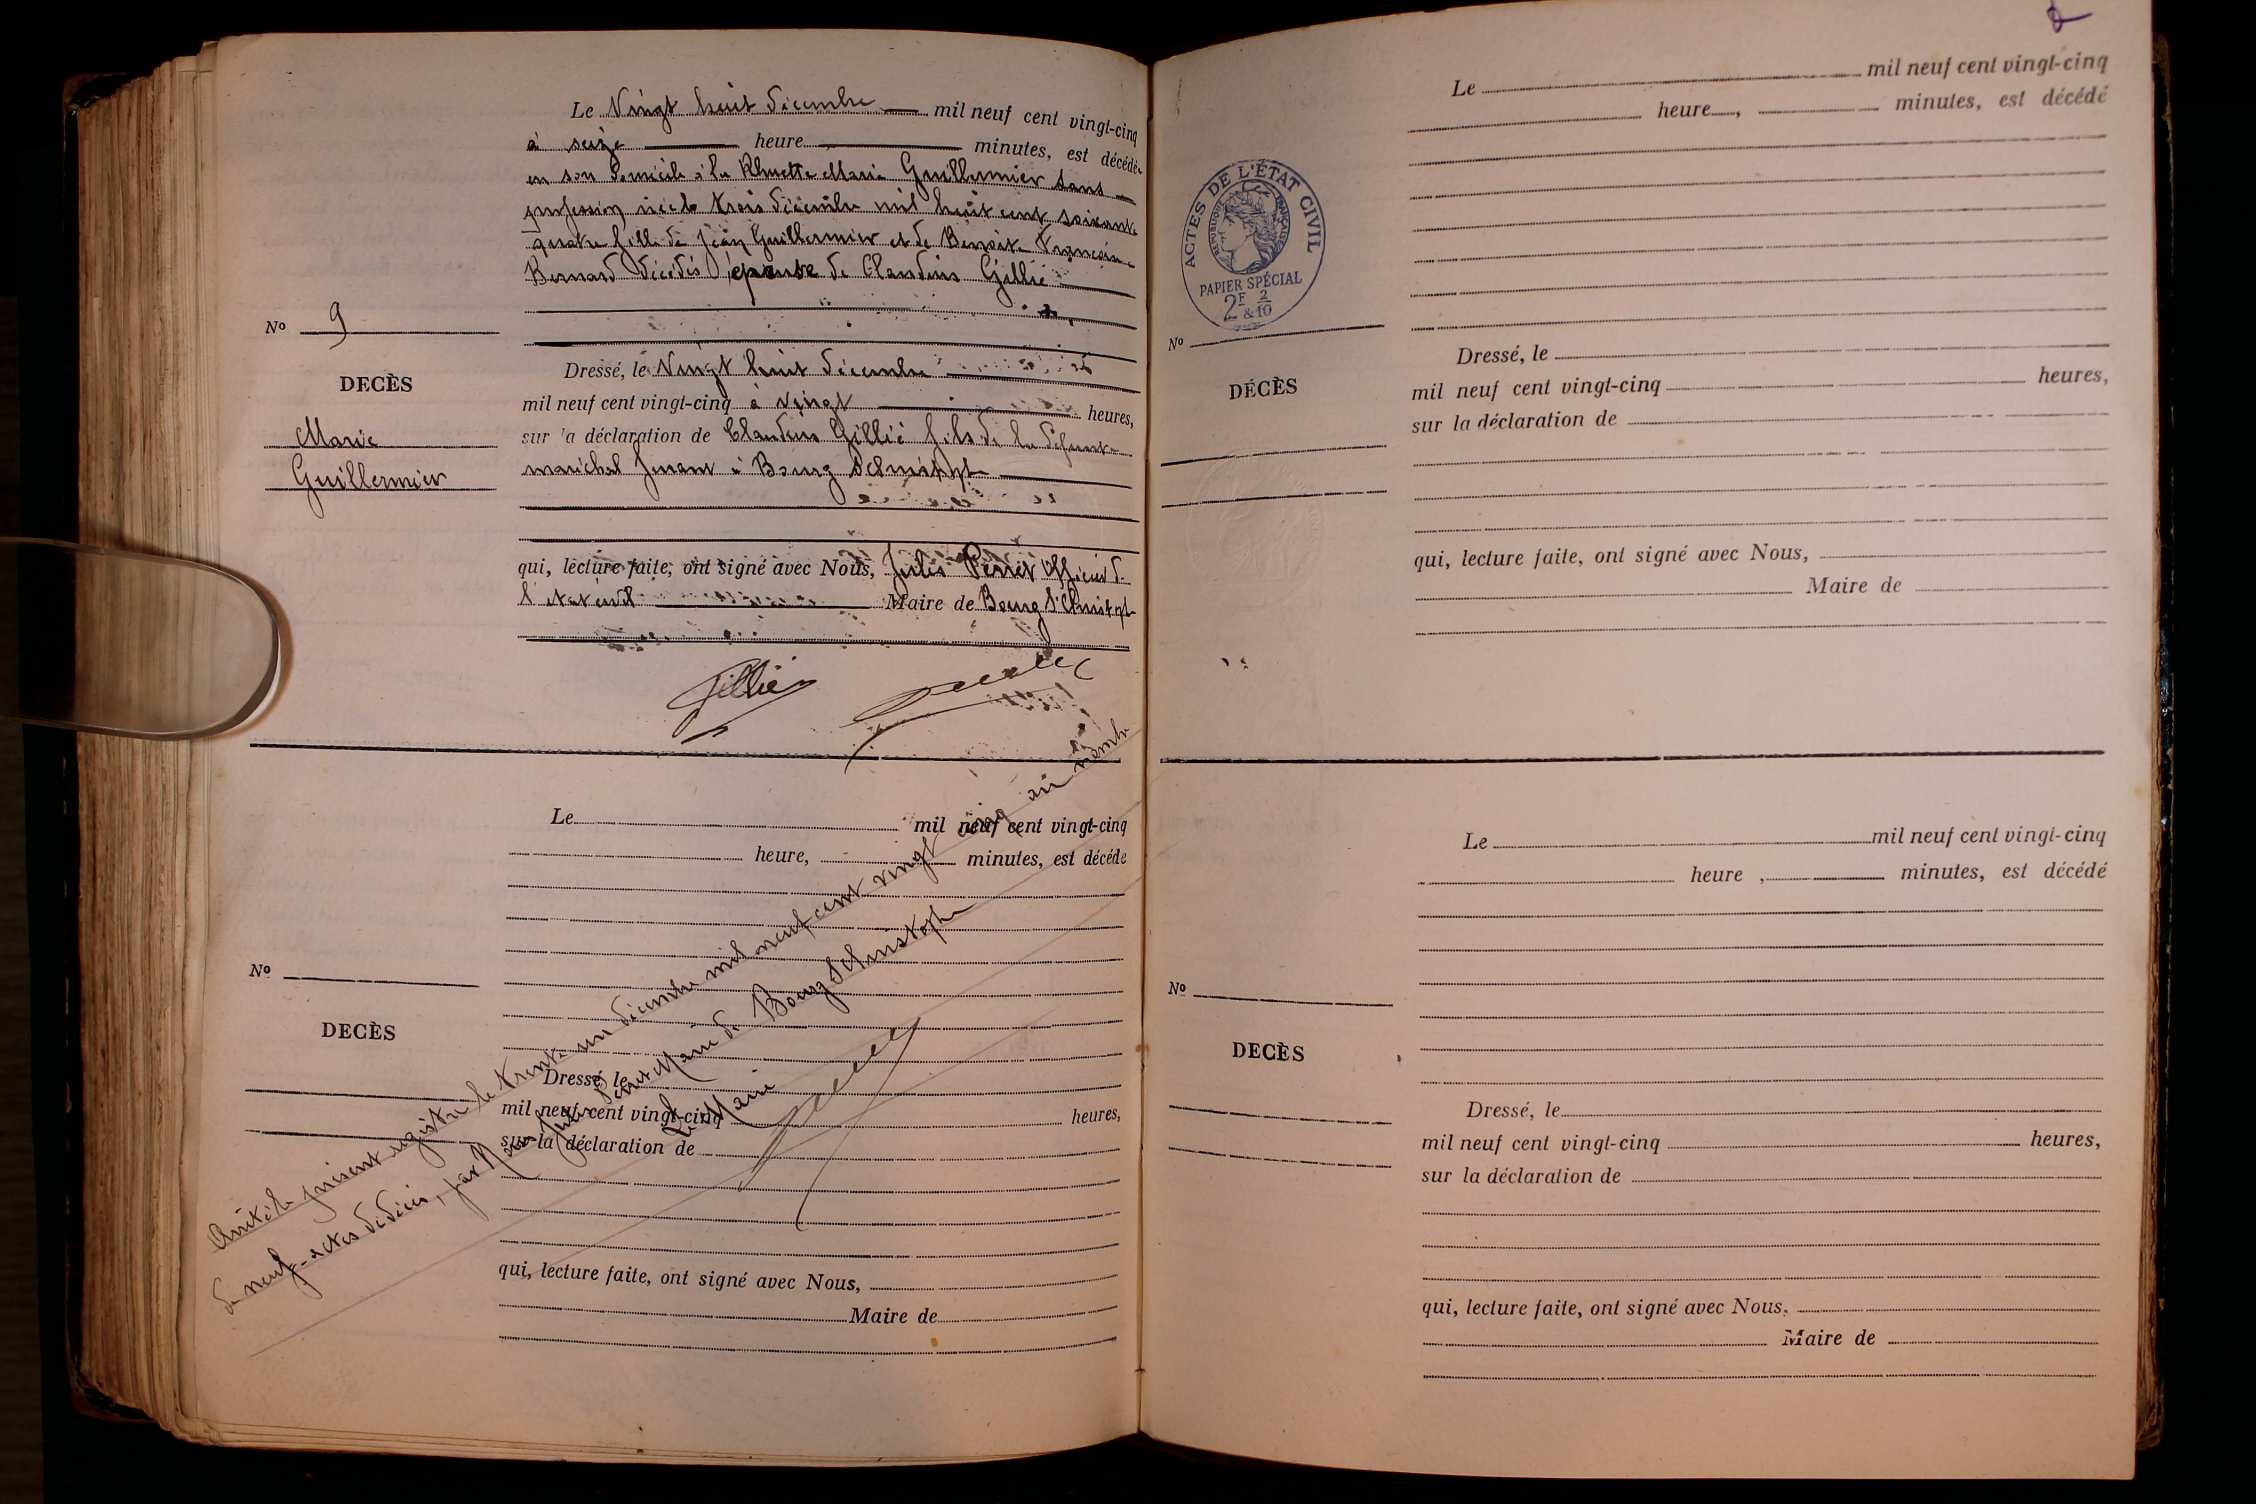 Le Vingt huit décembre mil neuf cent vingt-cinq
à seize heure minutes, est décédé
en son domicile à la Marie Guillermier sans
profession née le trois décembre mil huit cent soixante
quatre fille de Jean Guillermier et de Benoite Françoise
Bernard décédés épouse de Claudius Gillié
No 9
DECÈS
Marie
Guillermier
Dressé, le Vingt huit décembre
mil neuf cent vingt-cinq à vingt heures,
sur la déclaration de Claudius Gillié fils de la défunte
maréchal ferrant à Bourg St Christophe
qui, lecture faite, ont signé avec Nous, Jules Perret officier de
l'état civil Maire de Bourg St Christophe
Gillié
Le mil neuf cent vingt-cinq
heure, minutes, est décédé
No
DECÈS
Dressé, le
mil neuf cent vingt-cinq heures,
sur la déclaration de
qui, lecture faite, ont signé avec Nous,
Maire de
Arrêté le présent registre le trente un décembre mil neuf cent vingt cinq au nombre
de neuf actes de décès, par Nous Jules Perret Maire de Bourg St Christophe
Le Maire
2
Le mil neuf cent vingt-cinq
heure, minutes, est décédé
ACTES DE L'ÉTAT CIVIL
RÉPUBLIQUE FRANÇAISE
PAPIER SPÉCIAL
2F & 2/10
No
DÉCÈS
Dressé, le
mil neuf cent vingt-cinq heures,
sur la déclaration de
qui, lecture faite, ont signé avec Nous,
Maire de
Le mil neuf cent vingt-cinq
heure , minutes, est décédé
No
DECÈS
Dressé, le
mil neuf cent vingt-cinq heures,
sur la déclaration de
qui, lecture faite, ont signé avec Nous.
Maire de